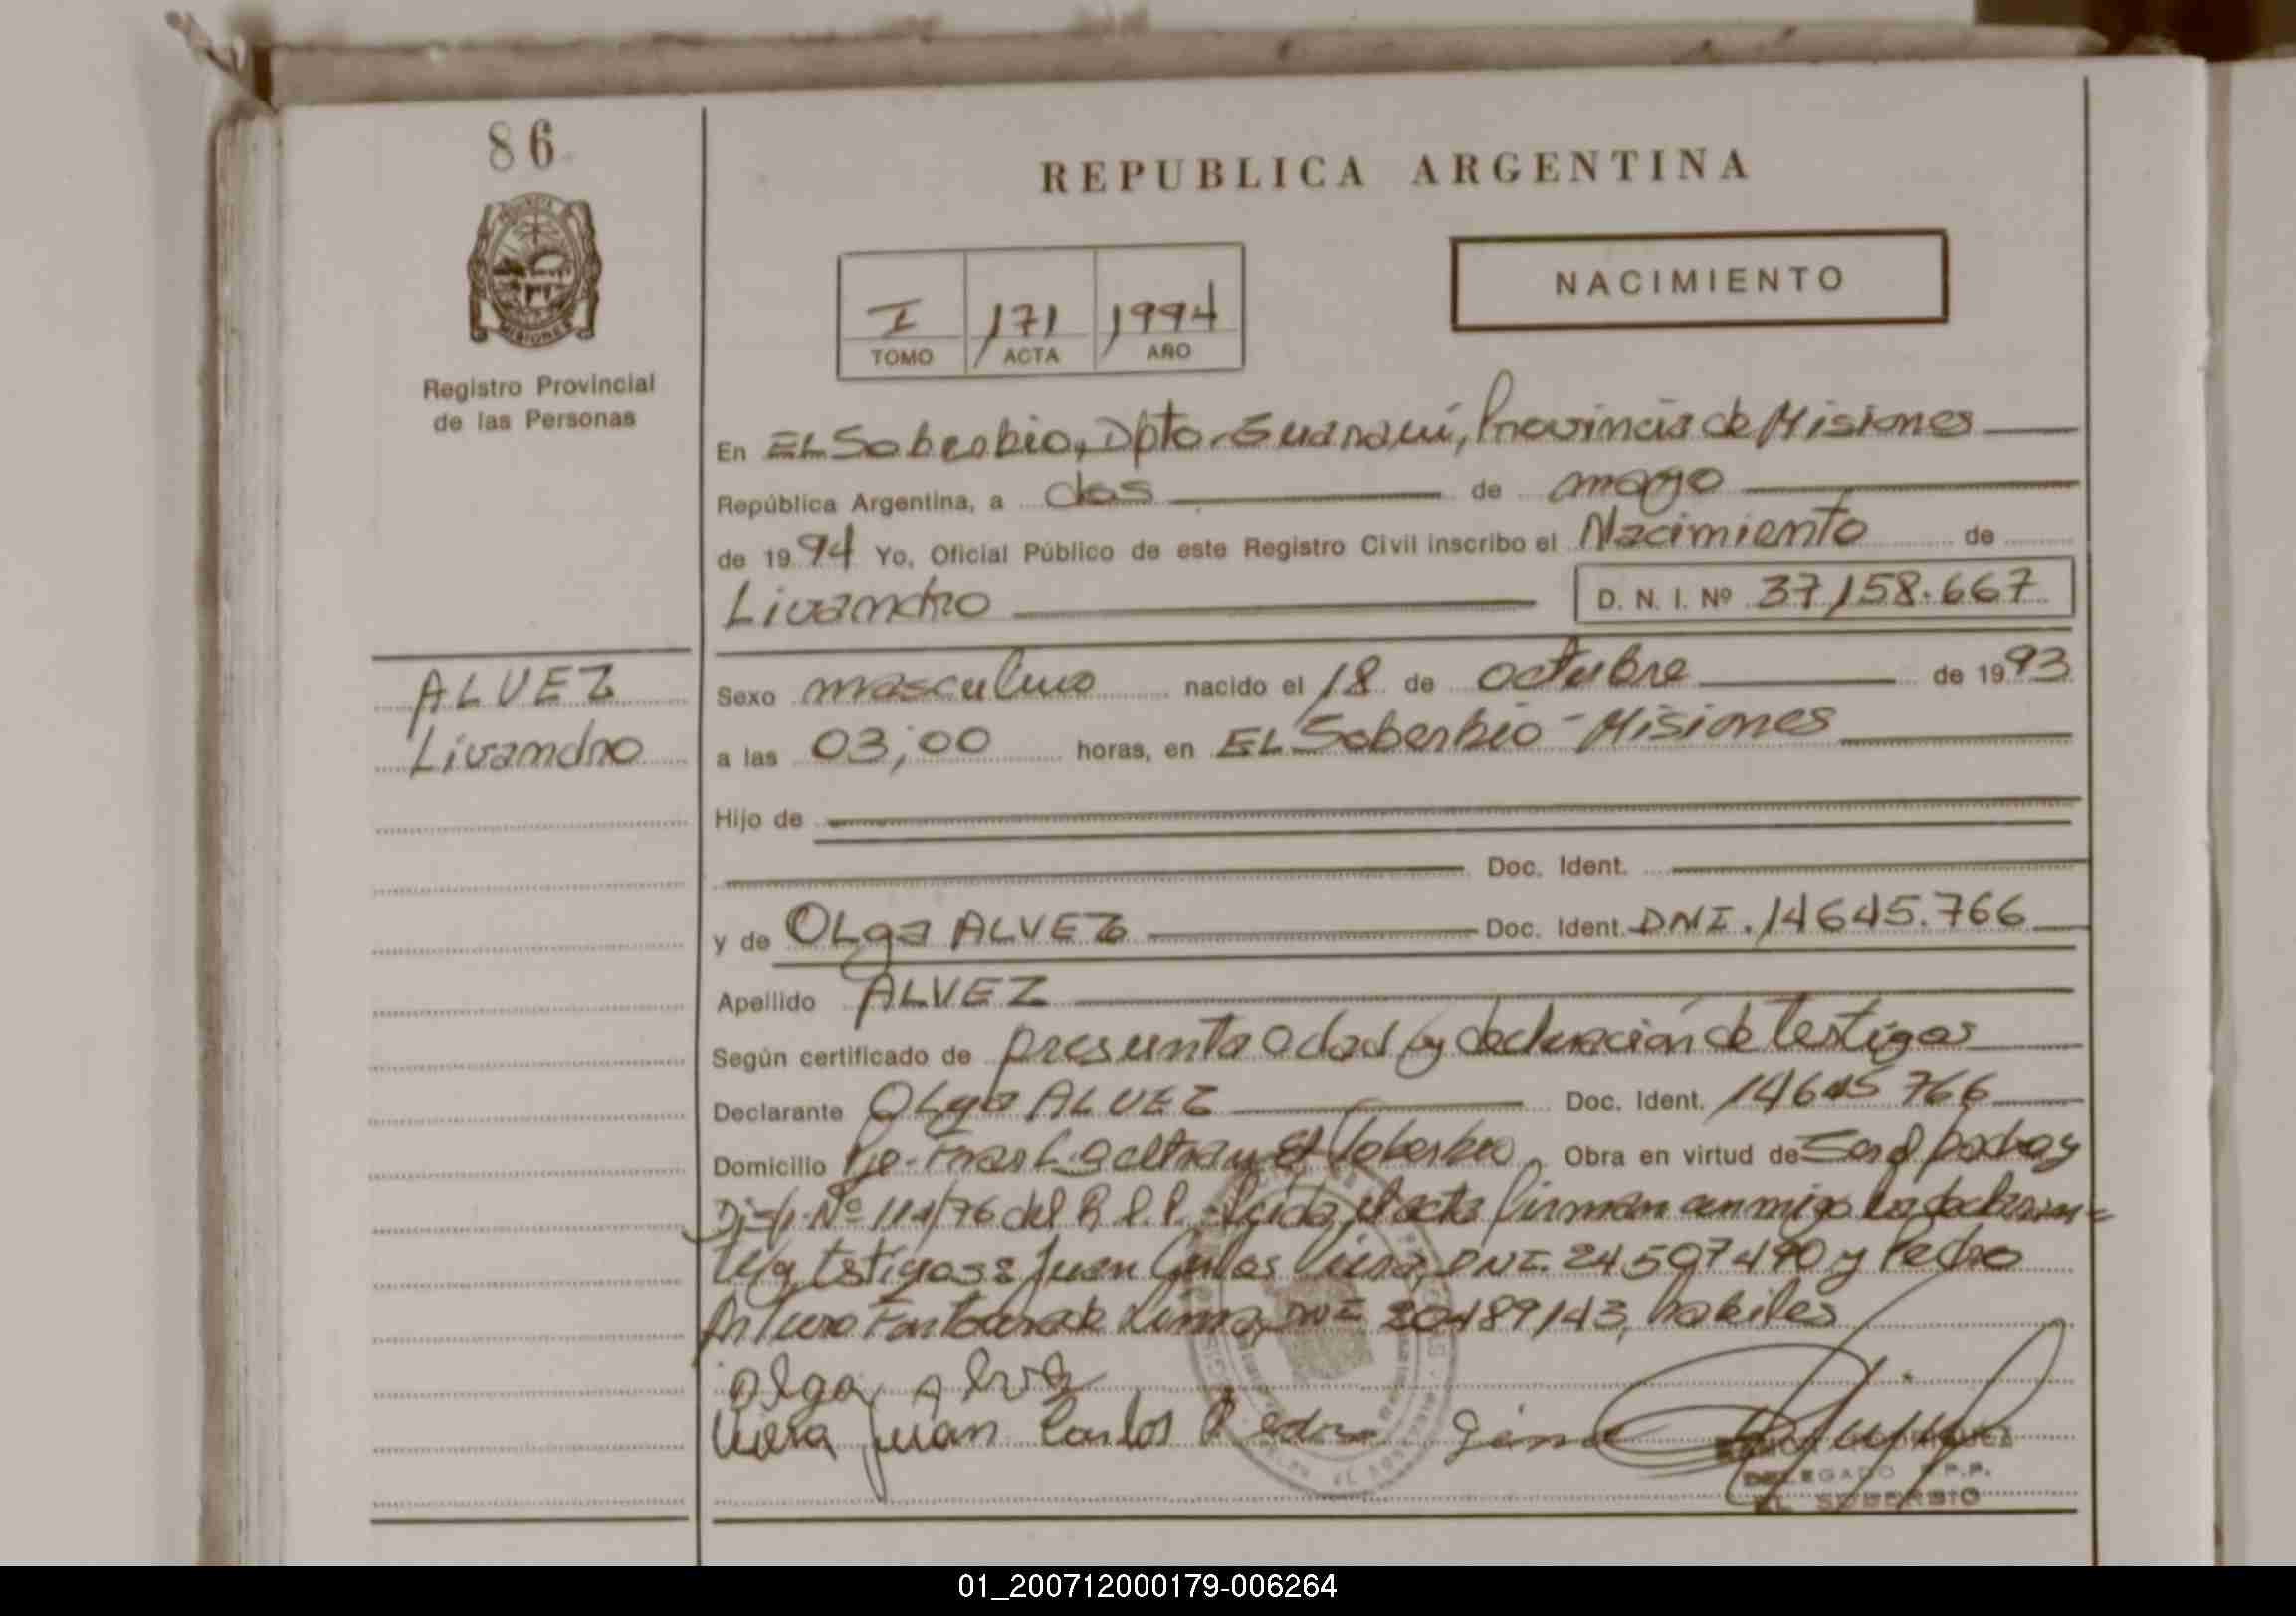 86
REPUBLICA ARGENTINA
NACIMIENTO
I /171 1994
TOMO ACTA AÑO
MISIONES
Registro Provincial
de las Personas
En EL Soberbio, Dpto. Guaraní, Provincia de Misiones
República Argentina, a dos de mayo
de 1994 Yo, Oficial Público de este Registro Civil inscribo el Nacimiento de
Livandro D. N. I. Nº 37,158.667
ALVEZ
Livandro
Sexo masculino nacido el 18 de octubre de 1993
a las 03;00 horas, en EL Soberbio - Misiones
Hijo de
Doc. Ident.
y de OLga ALVEZ Doc. Ident. DNI. 14645.766
Apellido ALVEZ
Según certificado de presunta edad y declaración de testigos
Declarante OLga ALVEZ Doc. Ident. 14645766
Domicilio Soberbio Obra en virtud de
Nº 114/76 del R.P.P. Leída el acta firman conmigo la declaran=
te y testigos: Juan Carlos Viera, DNI. 24597490 y Pedro
Arturo de Lima, DNI 20489143, hábiles
Olga Alvez
Viera Juan Carlos Pedro
DELEGADO R.P.P.
EL SOBERBIO
01_200712000179-006264